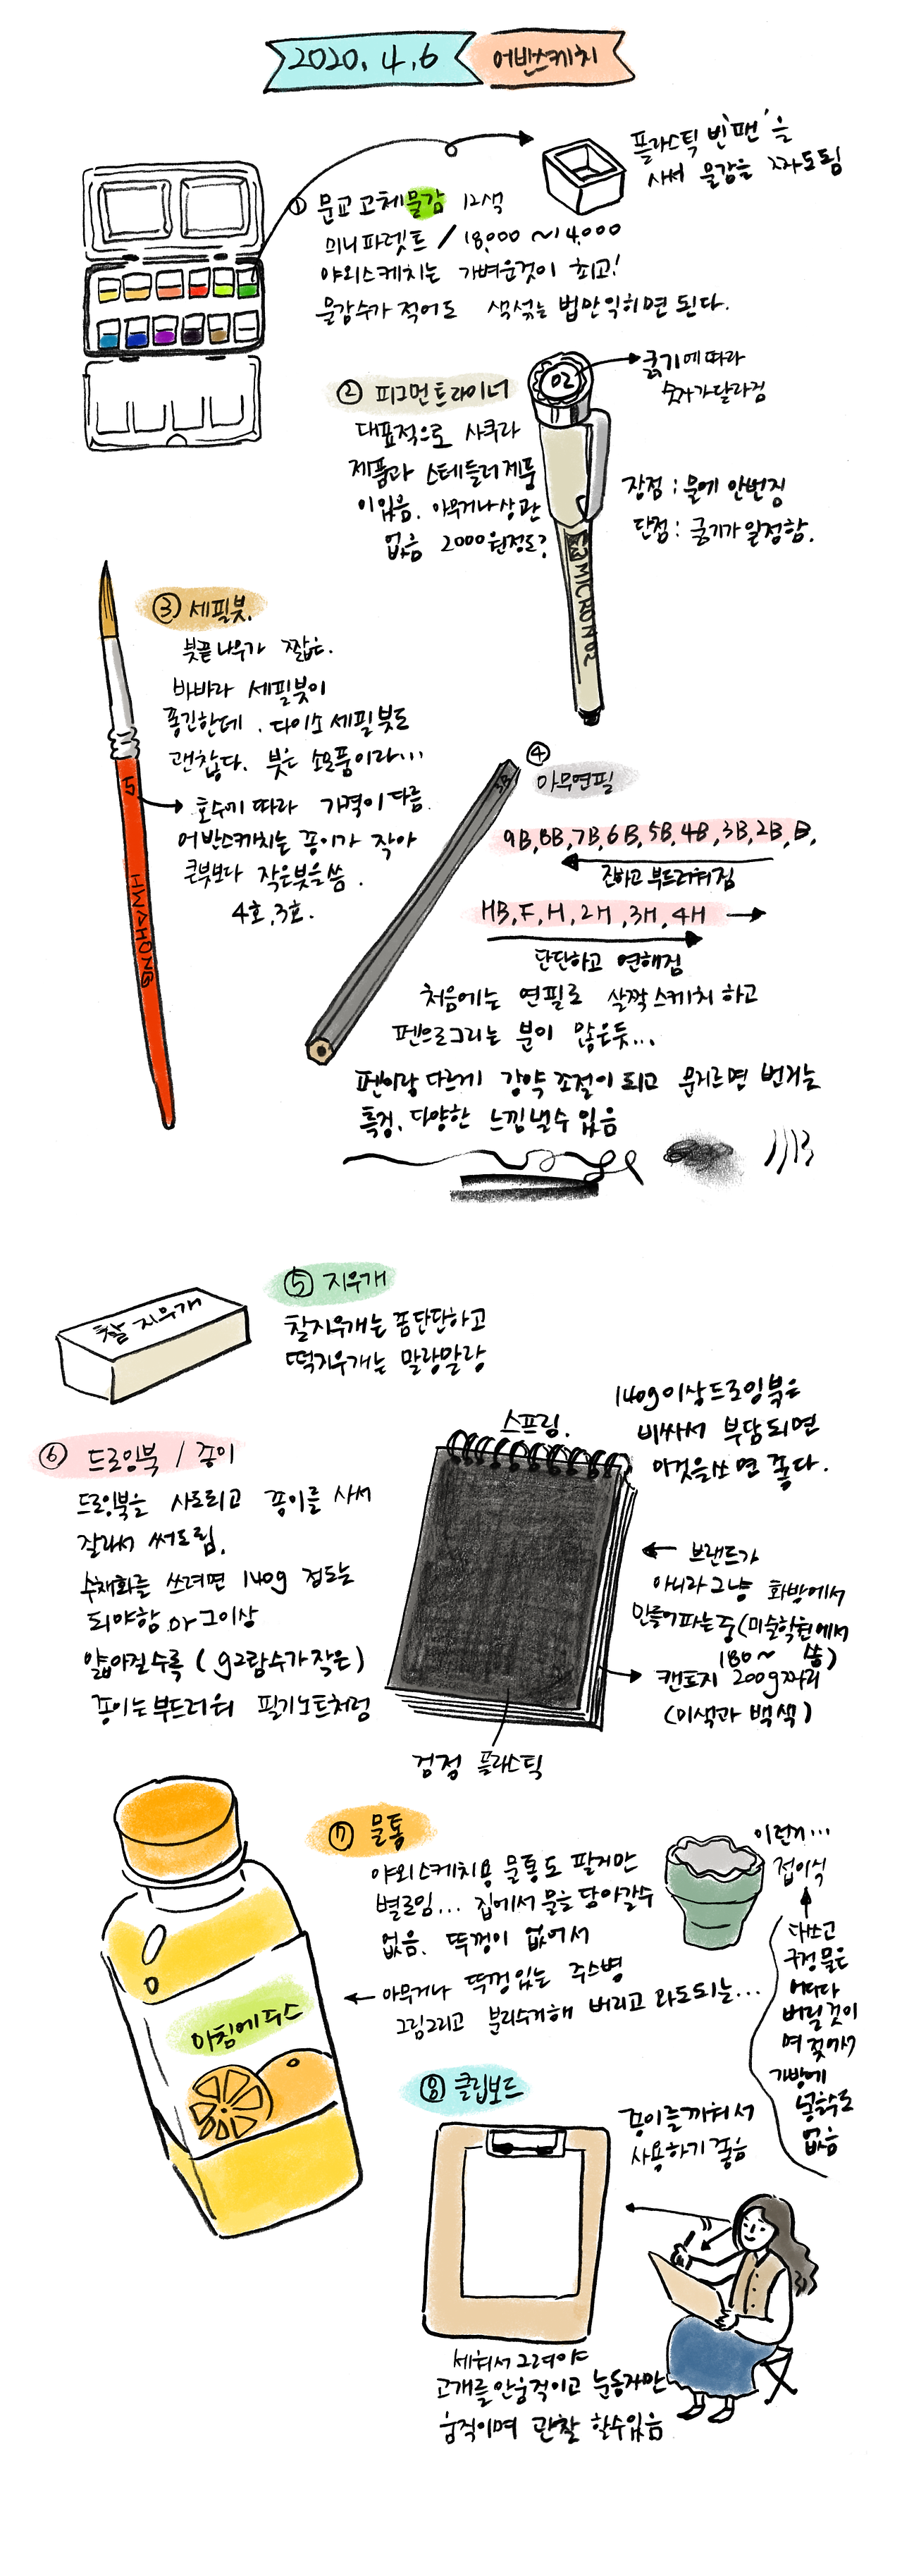 2020. 4. 6 어반스케치
플라스틱 빈'팬'을
사서 물감을 짜도됨
① 문교 고체물감 12색
미니파렛트 / 18,000 ~ 14,000
야외스케치는 가벼운것이 최고!
물감수가 적어도 색섞는 법만 익히면 된다.
② 피그먼트라이너
대표적으로 사쿠라
제품과 스테들러제품
이있음. 아무거나상관
없음 2000원정도?
02
굵기에 따라
숫자가달라짐
장점 : 물에 안번짐
단점 : 굵기가 일정함.
MICRON 02
③ 세필붓.
붓끝 너무가 짧은.
바바라 세필붓이
좋긴한데. 다이소 세필붓도
괜찮다. 붓은 소모품이라...
호수에 따라 가격이 다름
어반스케치는 종이가 작아
큰붓보다 작은붓을 씀.
4호, 3호.
5
HWAHONG
④
아무연필
9B, 8B, 7B, 6B, 5B, 4B, 3B, 2B, B,
진하고 부드러워짐
HB, F, H, 2H, 3H, 4H
단단하고 연해짐
처음에는 연필로 살짝 스케치 하고
펜으로그리는 분이 많은듯...
펜이랑 다르게 강약 조절이 되고 문지르면 번지는
특징. 다양한 느낌낼수 있음
⑤ 지우개
찰지우개는 좀단단하고
떡지우개는 말랑말랑
찰 지우개
⑥ 드로잉북 / 종이
드로잉북을 사도되고 종이를 사서
잘라서 써도됨.
수채화를 쓰려면 140g 정도는
되야함 or 그이상
얇아질수록 (g그람수가작은)
종이는부드러워 필기노트처럼
스프링.
140g이상드로잉북은
비싸서 부담되면
이것을쓰면 좋다.
브랜드가
아니라그냥 화방에서
만들어파는중 (미술학원에서
180~ 씀)
캔트지 200g짜리
(미색과 백색)
검정 플라스틱
⑦ 물통
야외스케치용 물통도 팔지만
별로임... 집에서 물을 담아갈수
없음. 뚜껑이 없어서
아무거나 뚜껑있는 주스병
그림그리고 분리수거해 버리고 와도되는...
이런거...
접이식
다쓰고
구정물은
어디다
버릴것이
며 젖어서
가방에
넣을수도
없음
아침에주스
⑧ 클립보드
종이를끼워서
사용하기 좋음
세워서 그려야
고개를 안움직이고 눈동자만
움직이며 관찰 할수있음